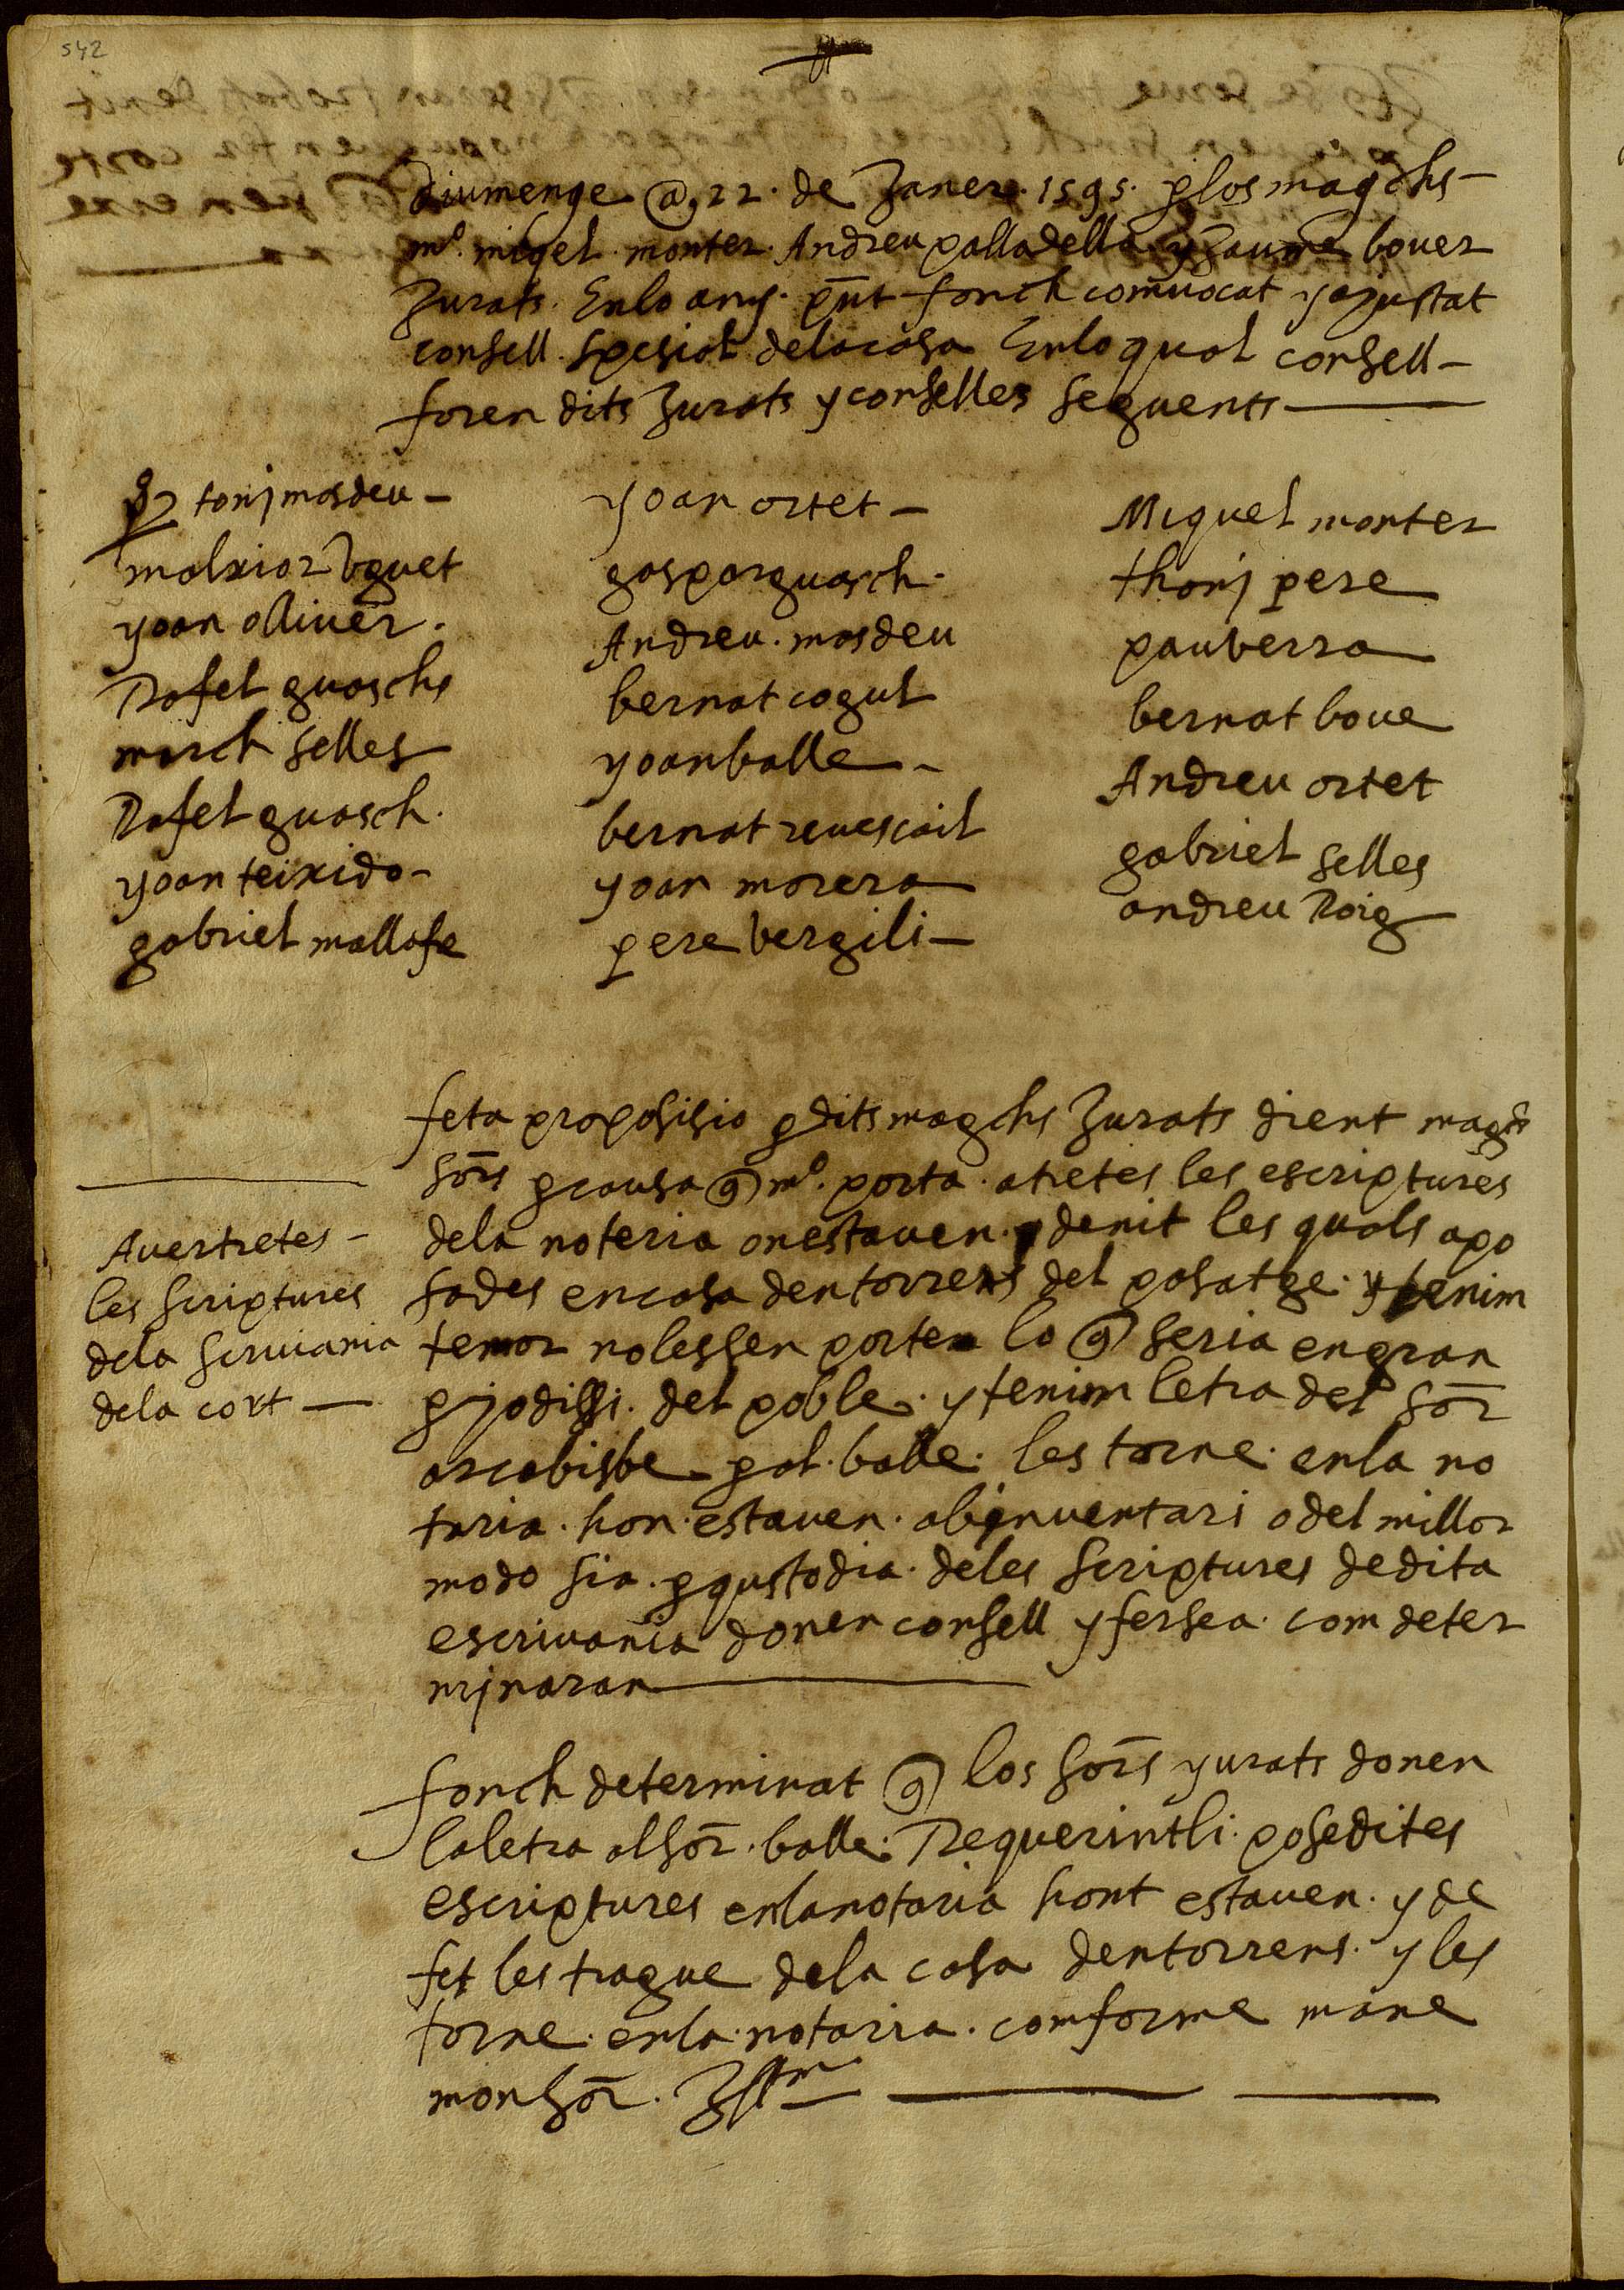 542
diumenge @ 22. de Janere. 1595. p los magchs
mº. miqel monter. Andreu palladella y Jaume bover
Jurats. En lo any. pnt fonch comvocat y ajustat
consell spesial de la casa En lo qual consell
foren dits Jurats y conselles seguents
tonj masdeu
malxior huguet
yoan olliver.
Rafel guaschs
march selles
Rafel guasch.
yoan teixido
gabriel mallafe
yoan ortet
gaspar guasch.
Andreu. masdeu
bernat cogul
yoan balle
bernat
yoan morera
pere bergili
Miquel monter
thonj pere
pau berra
bernat bove
Andreu ortet
gabriel selles
andreu Roig
feta proposisio p dits magchs Jurats dient magchs
sors p causa q mº. porta. a tretes les escriptures
de la noteria on estaven. de nit les quals a po
sades en casa den torrens del posatge. y tenim
temor no les sen porten lo q seria en gran
pjodissi. del poble. y tenim letra del sor
arcabisbe p al. balle. les torne. en la no
taria. hon. estaven. ab inventari o del millor
modo sia. p qustodia. de les scriptures de dita
escrivania donen consell y fer sea. com deter
mjnaran
Aver tretes
les scriptures
de la scrivania
de la cort
fonch determinat q los sors yurats donen
la letra al sor. balle. Requerintli. pose dites
escriptures en la notaria hont estaven. y de
fet les trague de la casa den torrens. y les
torne. en la. notaria. comforme mane
monsor. Illm